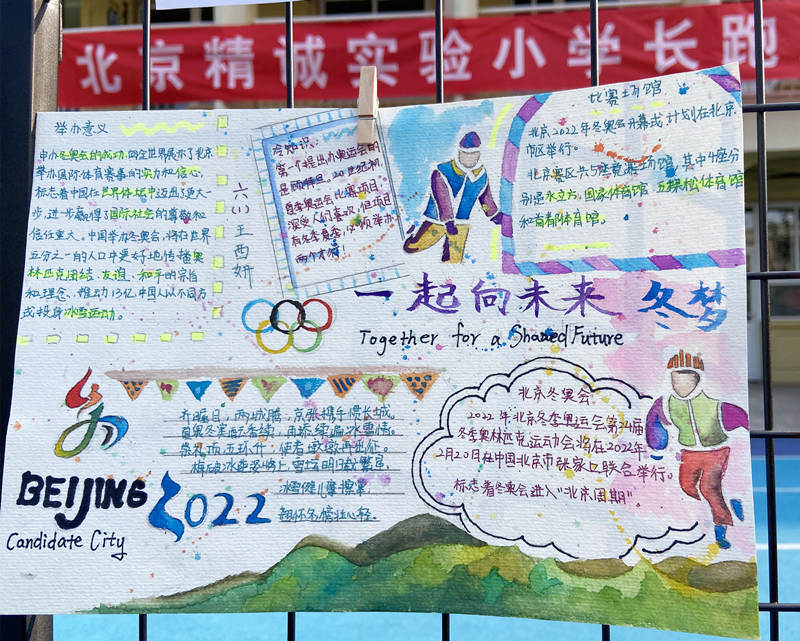 北京精诚实验小学长跑
举办意义
申办冬奥会的成功,向全世界展示了北京
举办国际体育赛事的实力和信心,
标志着中国在世界体坛中迈出了更大一
步,进步赢得了国际社会的尊敬和
信任重大。中国举办冬奥会,将在世界
五分之一的人口中更好地传播奥
林匹克团结、友谊、和平的宗旨
和理念,推动13亿中国人以不同方
式投身冰雪运动。
六(1)王西妍
冷知识:
第一个提出办奥运会的
是顾拜旦,20世纪初,
夏季奥运会比赛项目,
深受人们喜爱,但项目
有冬季夏季,必须举办
两个才好!
比赛场馆
北京2022年冬奥会开幕式计划在北京
市区举行。
北京赛区共5座竞赛场馆,其中4座分
别是水立方,国家体育馆 五棵松体育馆
和首都体育馆。
一起向未来 冬梦
Together for a Shared Future
齐瞩目,两城腾,京张携手偎长城。
夏奥冬来
冰雪情。
五环升;
BEIJING 2022
Candidate City
北京冬奥会
2022年北京冬季奥运会第24届
冬季奥林匹克运动会将在2022年
2月20日在中国北京市张家口联合举行。
标志着冬奥会进入“北京周期”。